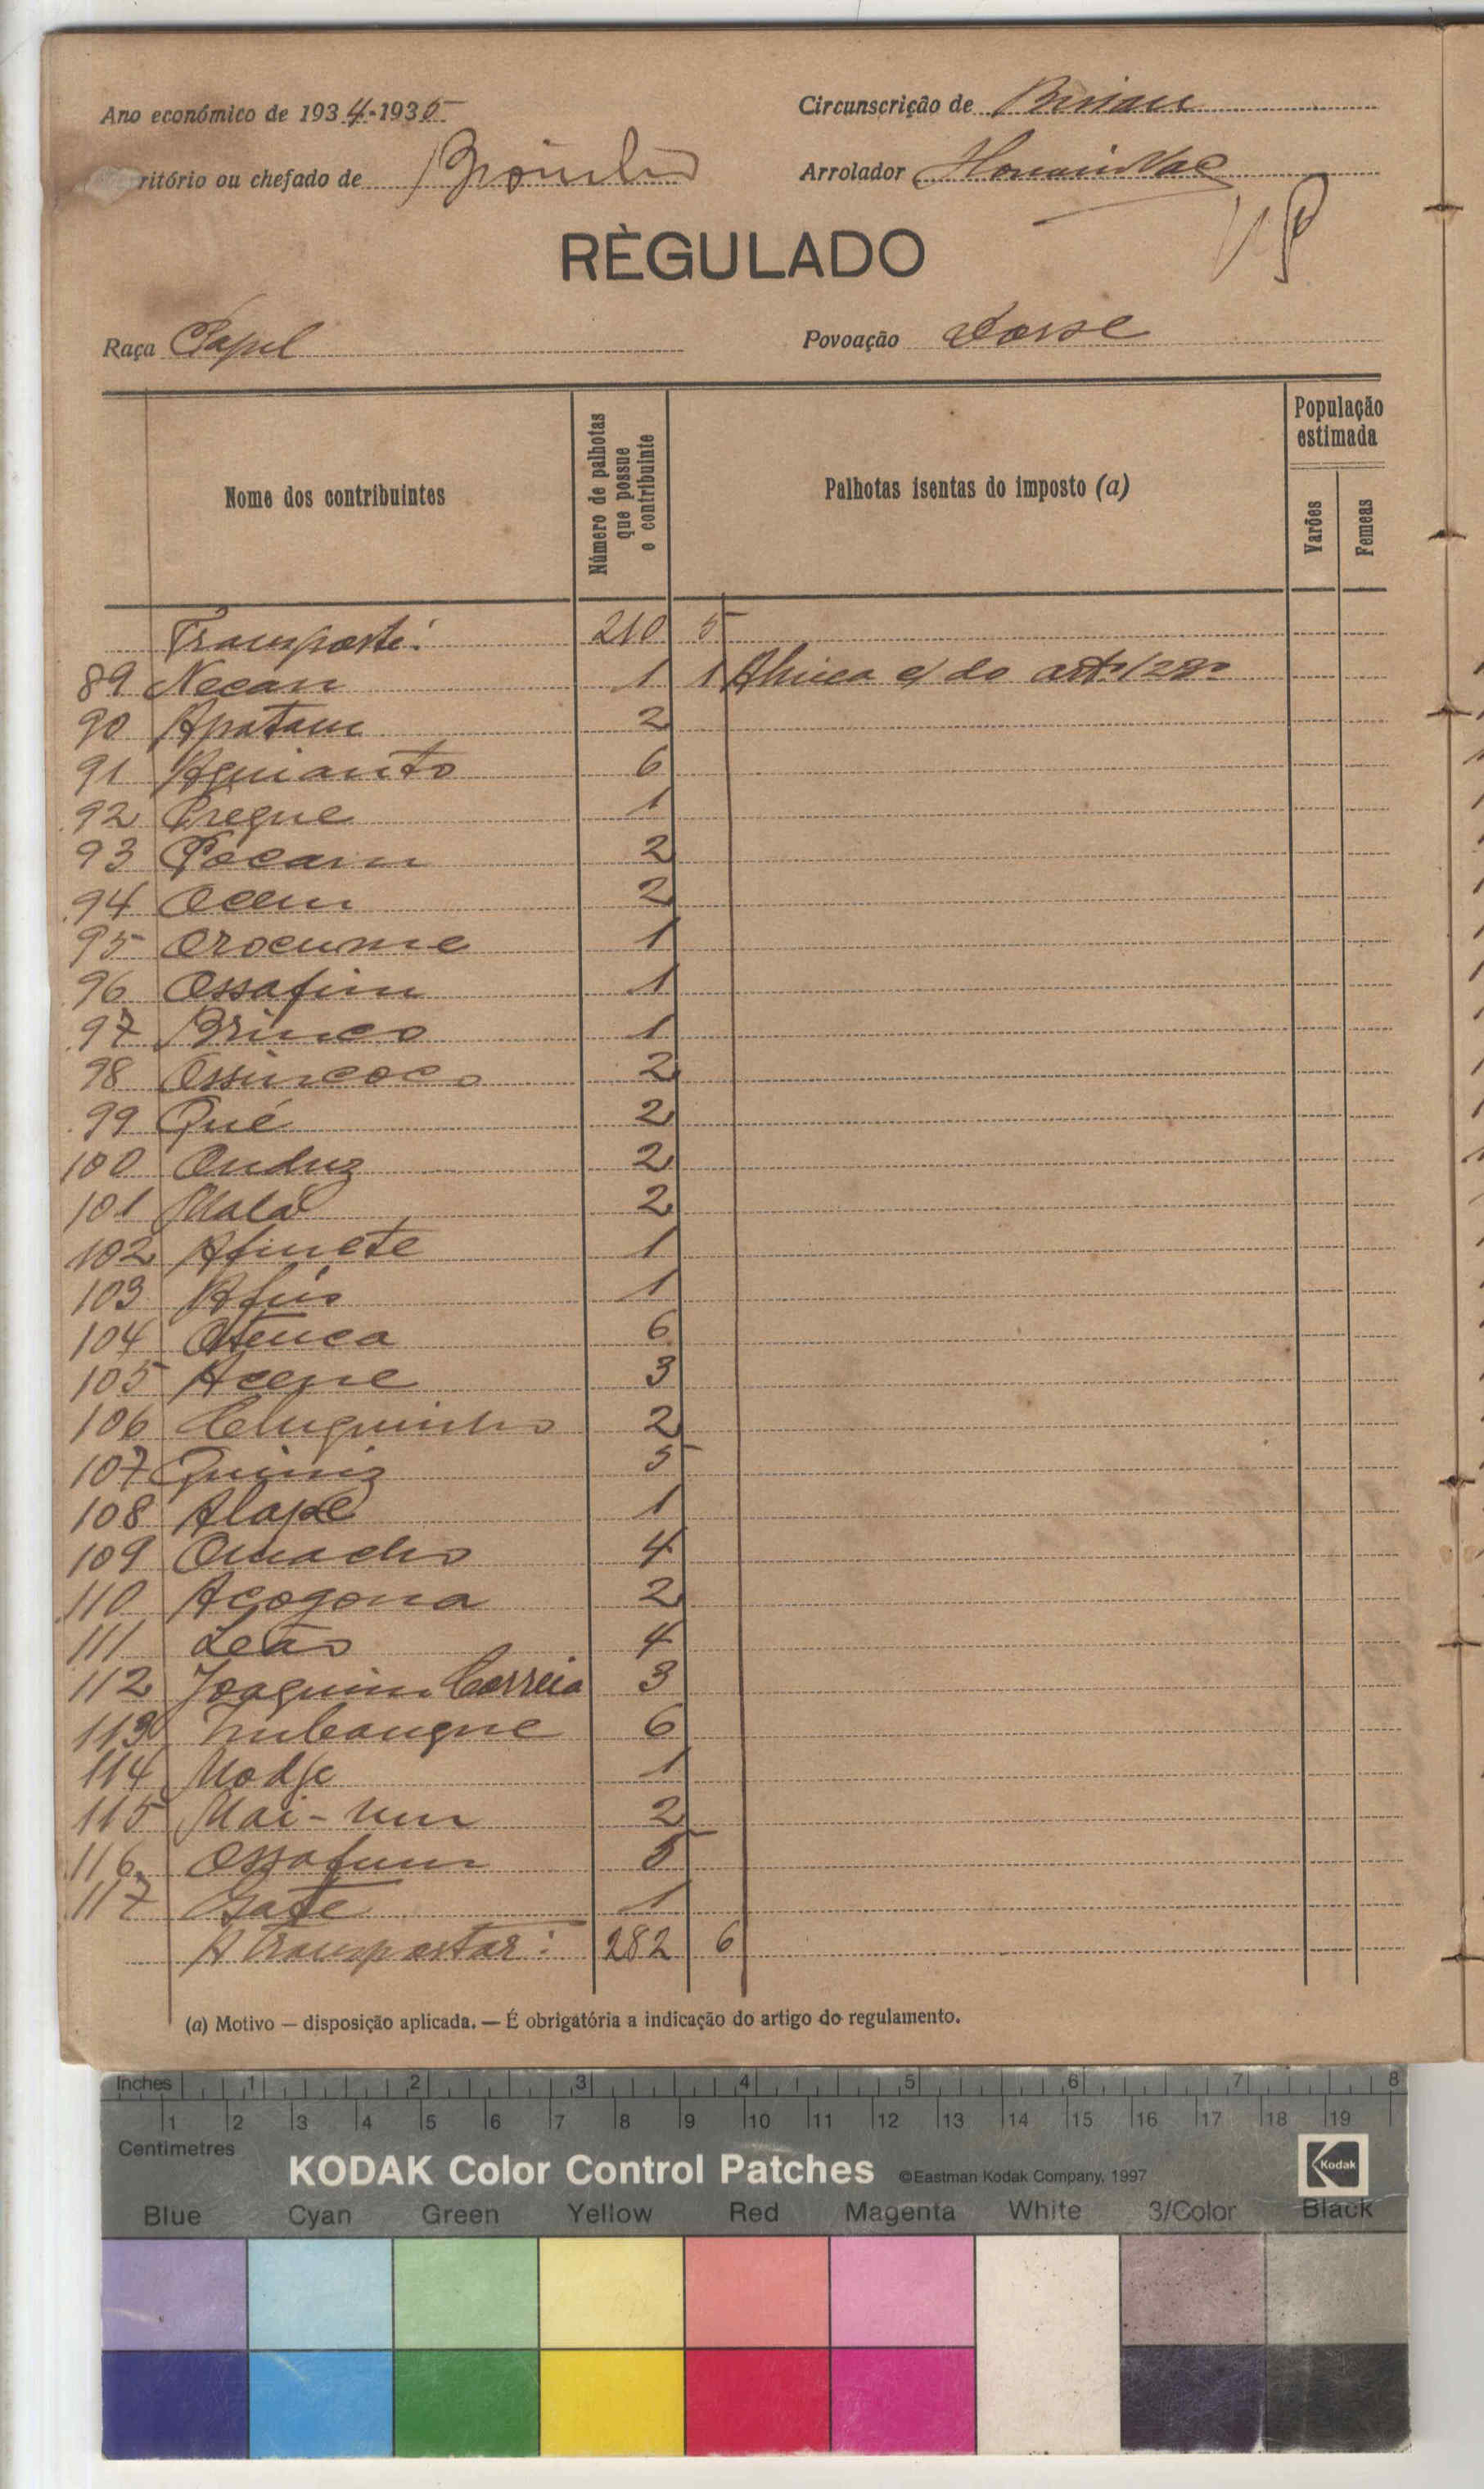 Ano económico de 1934-1935
Circunscrição de Bissau
ritório ou chefado de
Arrolador
RÈGULADO
Raça Papel
Povoação Dorse
Nome dos contribuintes
Número de palhotas que possue o contribuinte
Palhotas isentas do imposto (a)
População estimada
Varões
Femeas
Transporte: 210 5
89 Necan 1 1 Abuea c/ do artº 28º
90 Apatam 2
91 Aguianto 6
92 Pregue 1
93 Pocam 2
94 Ocem 2
95 Orocume 1
96 Ossafim 1
97 Brinco 1
98 Ossincoco 2
99 Qué 2
100 Onduz 2
101 Malá 2
102 Afinete 1
103 Afús 1
104 Otenca 6
105 Acene 3
106 2
107 Quiniz 5
108 Alape 1
109 Omacho 4
110 Acogona 2
111 Leão 4
112 Joaquim Correia 3
113 Imbangue 6
114 Modje 1
115 Mai-num 2
116 Ossofum 5
117 Gate 1
A transportar: 282 6
(a) Motivo — disposição aplicada. — É obrigatória a indicação do artigo do regulamento.
Inches 1 2 3 4 5 6 7 8
1 2 3 4 5 6 7 8 9 10 11 12 13 14 15 16 17 18 19
Centimetres
KODAK Color Control Patches ©Eastman Kodak Company, 1997 Kodak
Blue Cyan Green Yellow Red Magenta White 3/Color Black